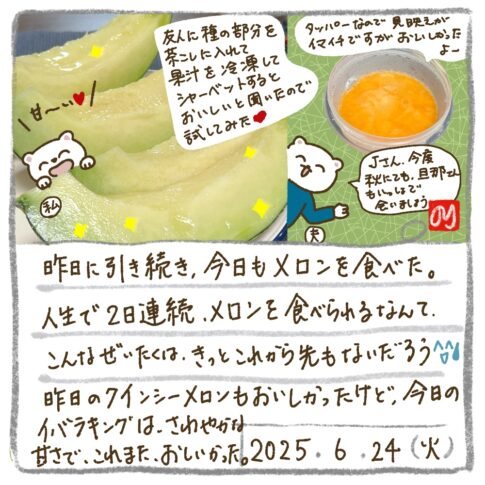 友人に種の部分を
茶こしに入れて
果汁を冷凍して
シャーベットすると
おいしいと聞いたので
試してみた
甘〜い
私
タッパーなので見映えが
イマイチですがおいしかった
よ〜
Jさん、今度
秋にでも、旦那さん
もいっしょで
会いましょう
夫
昨日に引き続き、今日もメロンを食べた。
人生で2日連続、メロンを食べられるなんて、
こんなぜいたくは、きっとこれから先もないだろう
昨日のクインシーメロンもおいしかったけど、今日の
イバラキングは、さわやかな
甘さで、これまた、おいしかった。
2025.6.24(火)